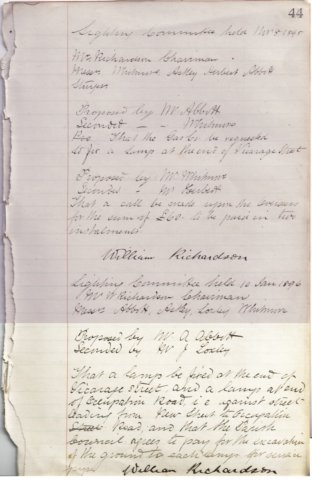 44
Lighting Committee held Nov 8 1895
Mr Richardson Chairman
Messrs Whitmore, Astley Herbert Abbott
Proposed by Mr Abbott
Seconded - - Whitmore
That the Gas Co. be requested
to fix a Lamp at the end of Vicarage Street
Proposed by Mr Whitmore
Seconded - Mr Herbert
That a call be made upon the overseers
for the sum of £60. to be paid in two
instalments.
William Richardson
Lighting Committee held 10 Jan. 1896
Mr W Richardson Chairman
Messrs Abbott, Astley, Loxley Whitmore
Proposed by Mr A Abbott
Seconded by Mr J Loxley
That a Lamp be fixed at the end of
Vicarage Street and a Lamp at end
of Occupation Road, i.e against street
leading from New Street to Occupation
Street Road, and that the Parish
Council agrees to pay for the excavation
of the ground to each Lamp for service
William Richardson